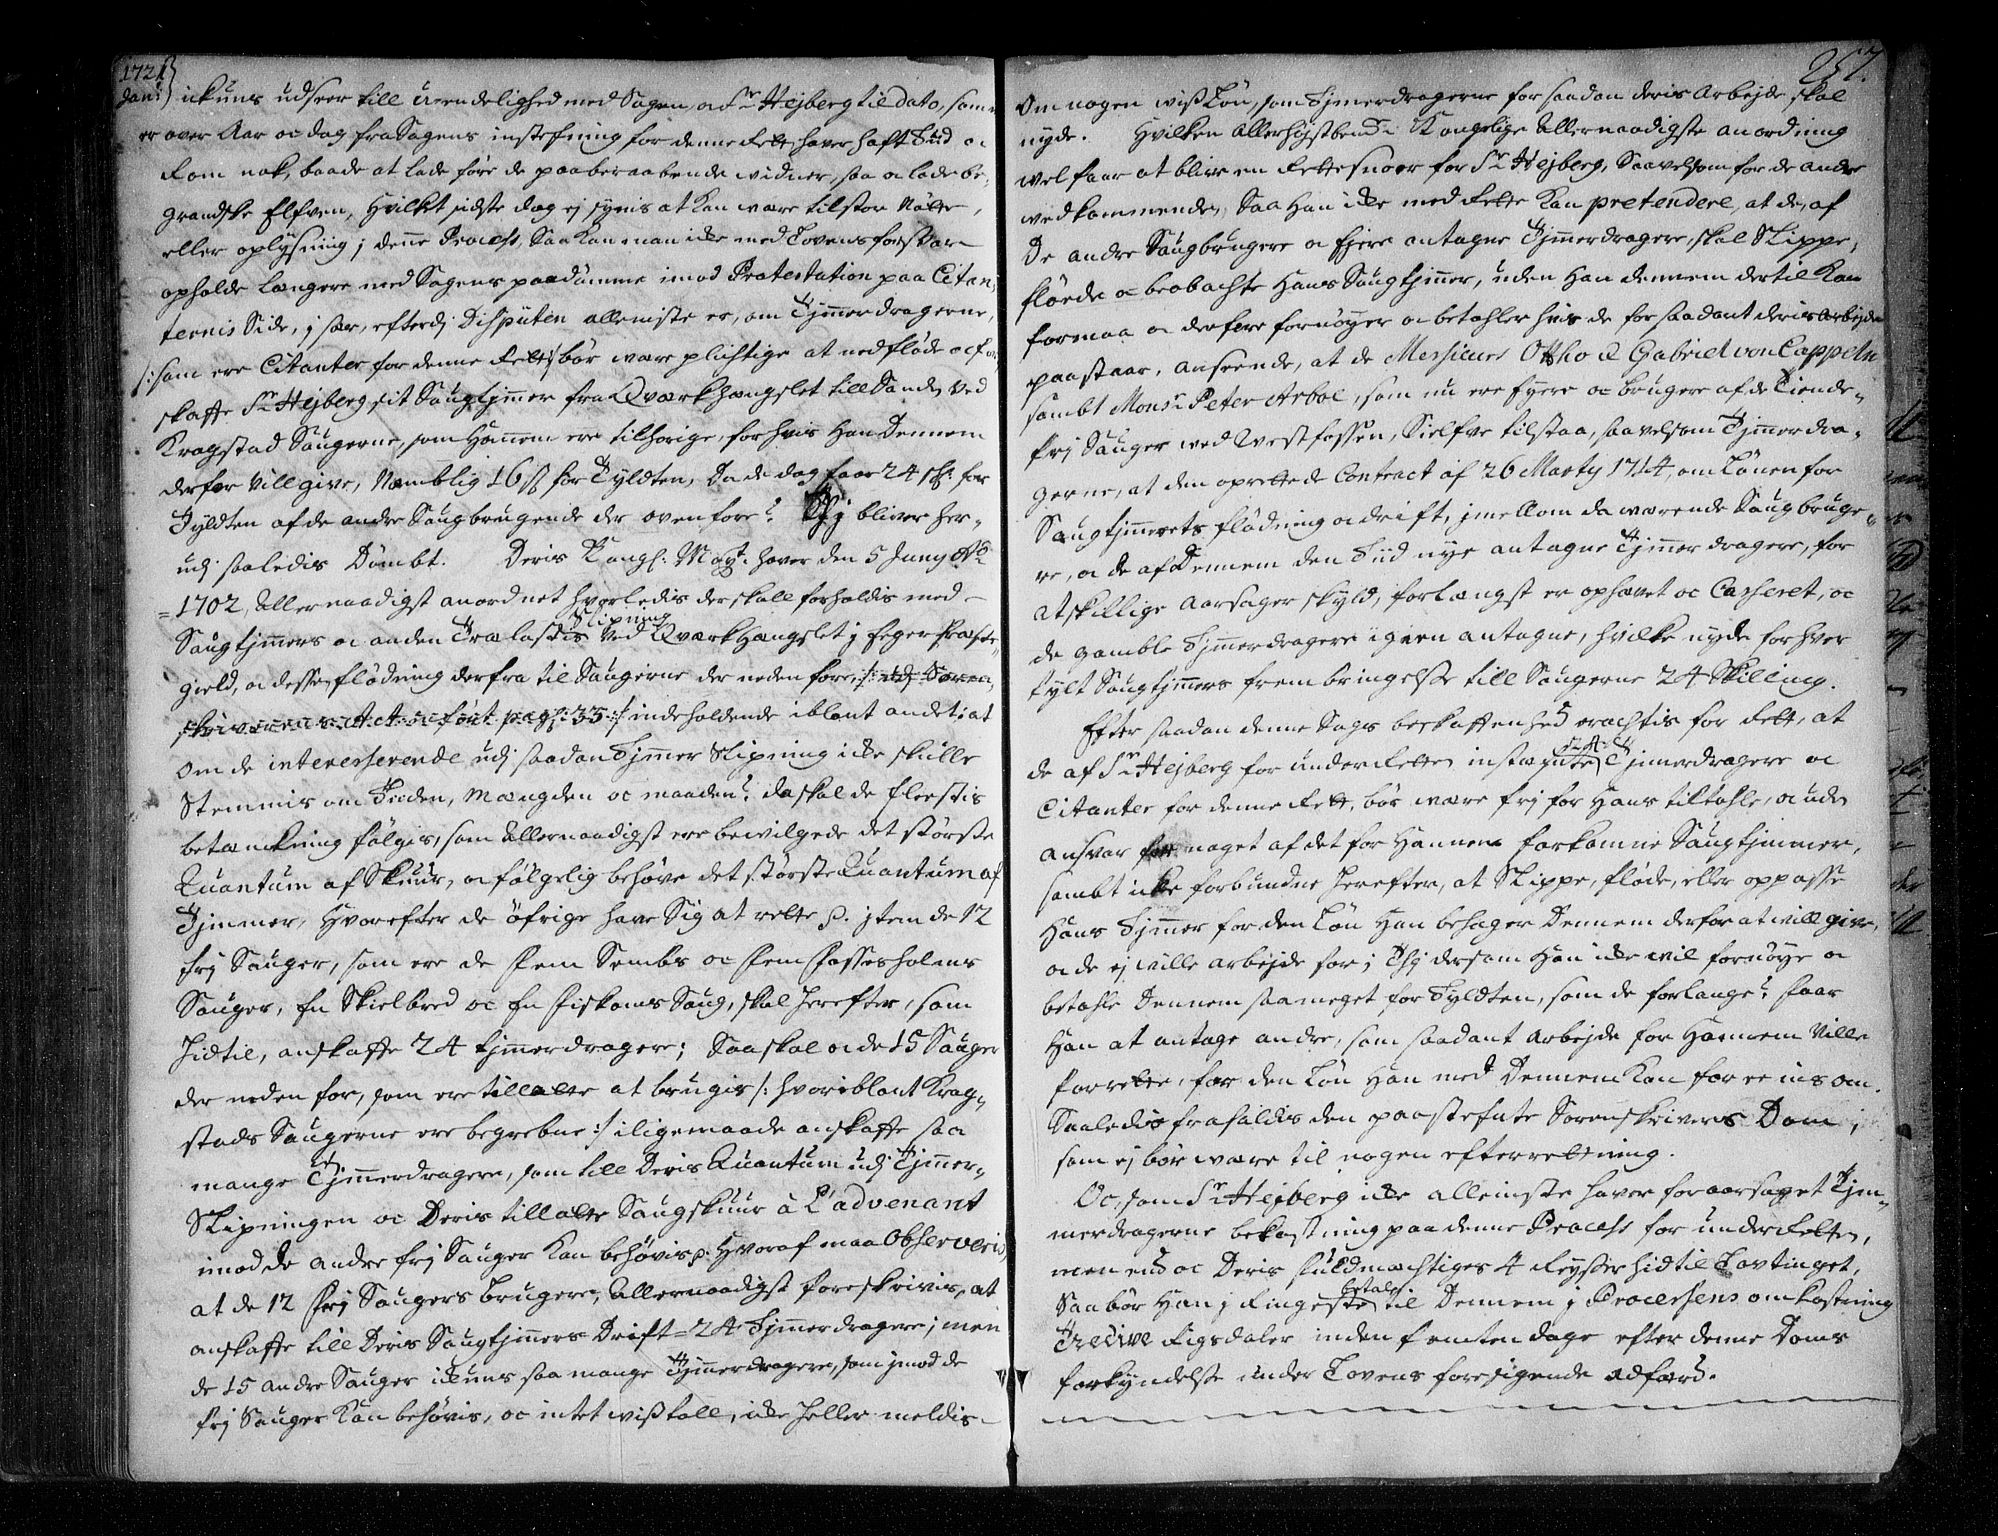 1721
Jan:
ickuns udseer till uendelighed med Sagen, a Sr Hejberg til dato, som
er over Aar oc dag fra Sagens instefning for denne Rett, haver haft Tiid oc
Rom nok, baade at lade føre de paaberaabende widner, saa oc lade be-
grandske Elfven, hvilket sidste dog ej synis at kan wære til stor Nötte,
eller oplysning j denne Process, Saa kan man icke med Lovens forsvar
opholde længere med Sagens paadømme imod Protestation paa Citan-
ternis Side, j sær, efterdj Disputen alleniste er, om Tjmmerdragerne,
/: som ere Citanter for denne Rett :/ bør wære plichtige at nedfløde oc for-
skaffe Sr Hejberg sit Saugtjmmer fra Qværk hængslet till Sande, ved
Kragstad Saugerne, som Hannem ere tilhørige, for hvis Han Dennem
derfor vill give, Nemblig 16 ß for Tyldten, Da de dog faar 24 sk: for
Tyldten af de andre Saugbrugende der ovenfore? Thj bliver her-
udj saaledis Dømbt. Deris Kongl: Mayt: haver den 5 Juny Ao
1702, Allernaadigst anordnet hvorledis der skall forholdis med
Saugtjmmers oc anden Trælastis Slipning ved Qværk Hængslet j Eger Præste-
gield, oc desse flødning derfra til Saugerne der nedenfore, /: udj Soren-
skriverens Act oc fört pag: 33 :/ indeholdende iblant andet: at
om de interesserende udj saadan Tjmmer Slipning icke skulle
Stemmis om Tiiden, Mængden oc maaden? da skal de fleestis
betænkning følgis, som Allernaadigst ere bewilgede det største
Quantum af Skuur, oc følgelig behøve det største Quantum af
Tjmmer, Hvorefter de öfrige have Sig at rette p. jtem de 12
frj Sauger, som ere de fem Sembs oc fem Fossesholms
Sauger, En Skielbred oc En Fiskoms Saug, skal herefter, som
hidtil, anskaffe 24 tjmmerdragere; Saa skal oc de 15 Sauger
der neden for, som ere tillatte at brugis /: hvoriblant Krag-
stads Saugerne ere begrebne :/ iligemaade anskaffe saa
mange Tjmmerdragere, som till Deris Quantum udj Tjmmer-
Slipningen oc Deris tillatte Saugskuur à L'advenant
imod de andre frj Sauger kan behøvis p. Hvoraf maa Observeris,
at de 12 frj Saugers brugere, Allernaadigst foreskrivis, at
anskaffe till Deris Saugtjmmers Drift 24 Tjmmerdragere; men
de 15 andre Sauger ickuns saa mange Tjmmerdragere, som imod de
frj Sauger kan behøvis, oc intet wist tall, icke heller meldis
257.
om nogen wiss Løn, som Tjmmerdragerne for saadan deris Arbejde skal
nyde. Hvilken Allerhøjstbemte Kongelige Allernaadigste anordning
wel faar at blive en Rettesnoer for Sr Hejberg, Saavelsom for de andre
wedkommende, Saa Han icke med Rette kan pretendere, at de af
De andre Saugbrugere a fjere antagne Tjmmerdragere, skal Slippe,
fløde oc beobachte Hans Saugtjmmer, uden Han dennem dertil kan
formaa oc derfore fornøyer oc betahler hvis de for saadant deris Arbejde
paastaar, anseende, at de Messieurs Ottho & Gabriel von Cappeln
sambt Monsr Peter Arboe, som nu ere Eyere oc brugere af de Tiende-
frj Sauger wed Westfossen, Sielfve tilstaa, saavelsom Tjmmerdra-
gerne, at den oprettede Contract af 26 Marty 1714, om Lönen for
Saugtjmmerets flødning oc drift, jmellom da wærende Saugbruge-
re, oc de af Dennem den Tiid nye antagne Tjmmerdragere, for
atskillige Aarsager skyld, forlængst er ophævet oc Casseret, oc
de gamble Tjmmerdragere igien antagne, hvilke nyde for hver
tylt Saugtjmmers frembringelse till Saugerne 24 Skilling.
Efter saadan denne Sags beskaffenhed erachtis for Rett, at
de af Sr Hejberg for under Retten instefnte Tjmmerdragere oc
Citanter for denne Rett, bør wære frj for Hans tiltahle, oc uden
ansvar for noget af det for Hannem forkomne Saugtjmmer,
sambt icke forbundne herefter, at Slippe, fløde, eller oppasse
Hans Tjmmer for den Løn Han behager Dennem derfor at vill give,
oc de ej wille arbejde for; Thj dersom Han icke wil fornöye oc
betahle Dennem saa meget for Tyldten, som de forlange? faar
Han at antage andre, som saadant Arbejde for Hannem ville
forrette, for den Løn Han med Dennem kan foreenis om.
Saaledis frafaldis den paastefnte Sorenskrivers Dom,
som ej bør wære til nogen efterretning.
Oc, som Sr Hejberg icke alleniste haver foraarsaget Tjm-
merdragerne bekostning paa denne Process for under Retten,
men end oc Deris fuldmæchtiges 4 Reyser hid til Lavtinget,
Saa bør Han j Ringeste betale til Dennem j Processens omkostning
Tredive Rigsdaler inden femten dage efter denne Doms
forkyndelse under Lovens foresigende adfærd.